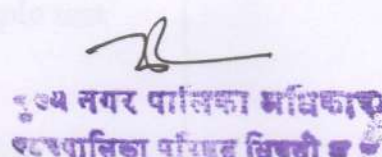 मुख्य नगर पालिका अधिकारी
नगरपालिका परिषद सिवनी